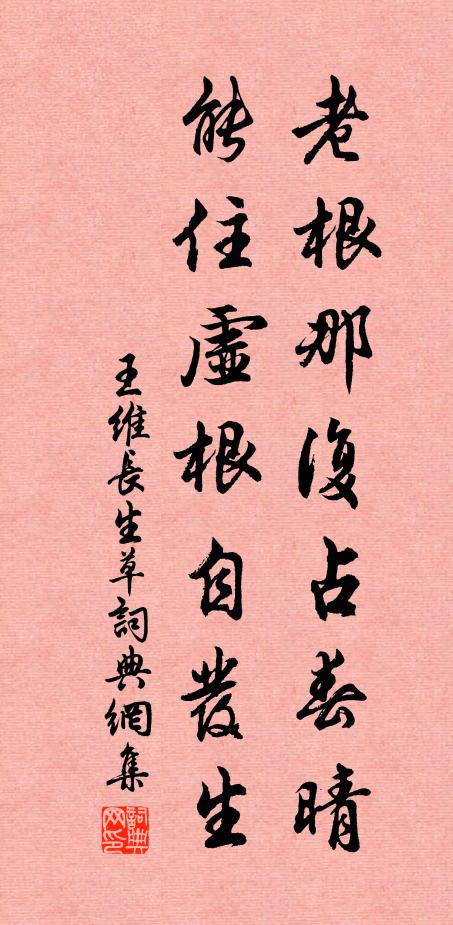 老根那復占春晴
能住虛根自發生
王維長生草詞典網集
詞典网印